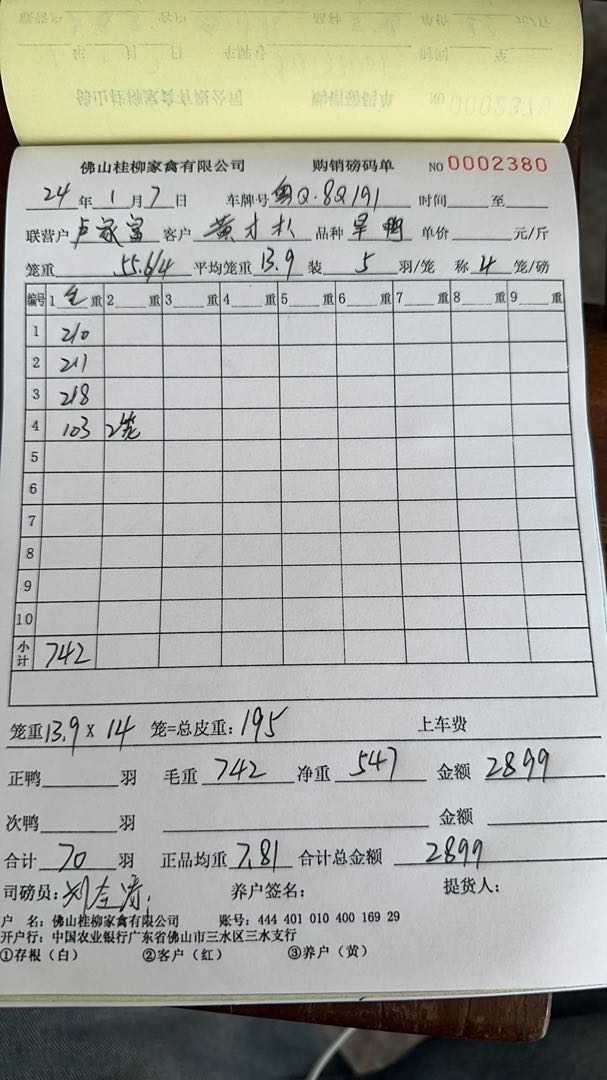 佛山桂柳家禽有限公司 购销磅码单 NO 0002380
24年1月7日 车牌号 粤Q·8Q191 时间 至
联营户 卢家富 客户 黄才权 品种 旱鸭 单价 元/斤
笼重 55.6/4 平均笼重 13.9 装 5 羽/笼 称 4 笼/磅
编号 1 毛 重 2 重 3 重 4 重 5 重 6 重 7 重 8 重 9 重
1 210
2 211
3 218
4 103 2笼
5
6
7
8
9
10
小计 742
笼重 13.9 x 14 笼=总皮重: 195 上车费
正鸭 羽 毛重 742 净重 547 金额 2899
次鸭 羽 金额
合计 70 羽 正品均重 7.81 合计总金额 2899
司磅员: 养户签名: 提货人:
户 名: 佛山桂柳家禽有限公司 账号: 444 401 010 400 169 29
开户行: 中国农业银行广东省佛山市三水区三水支行
①存根（白） ②客户（红） ③养户（黄）